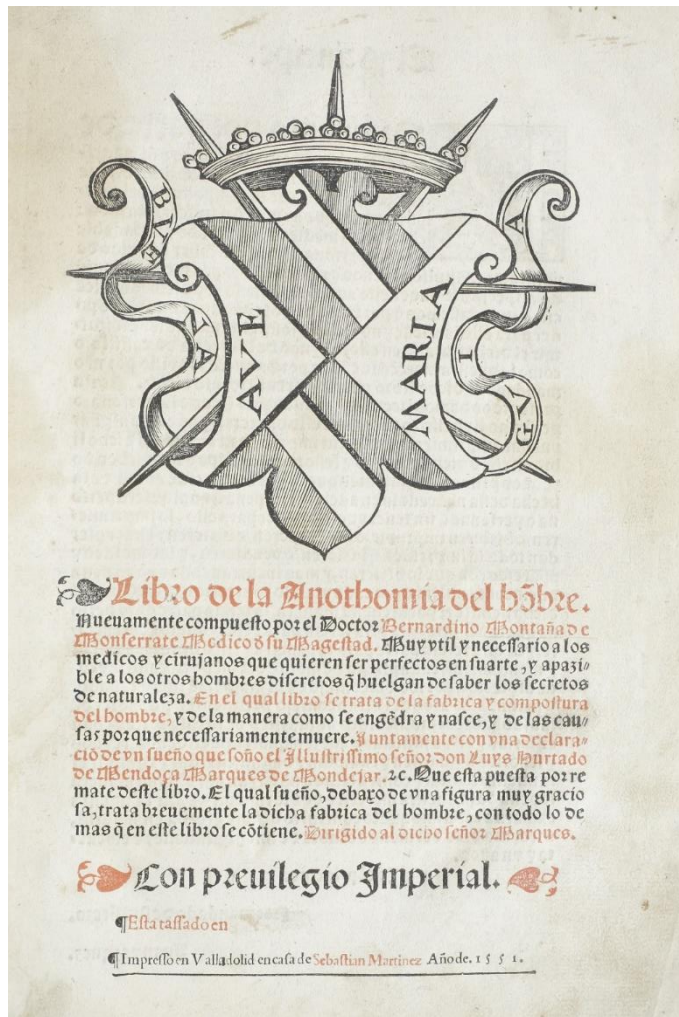 BVE
NA
A
I
GVI
AVE
MARIA
Libro de la Anothomia del hõbre.
Nueuamente compuesto por el Doctor Bernardino Montaña de
Monserrate Medico ð su Magestad. Muy vtil y necessario a los
medicos y cirujanos que quieren ser perfectos en su arte, y apazi-
ble a los otros hombres discretos q̃ huelgan de saber los secretos
de naturaleza. En el qual libro se trata de la fabrica y compostura
del hombre, y de la manera como se engẽdra y nasce, y de las cau-
sas porque necessariamente muere. Juntamente con vna declara-
ciõ de vn sueño que soño el Illustrissimo señor don Luys Hurtado
de Mendoça Marques de Mondejar. ⁊c. Que esta puesta por re
mate deste libro. El qual sueño, debaxo de vna figura muy gracio
sa, trata breuemente la dicha fabrica del hombre, con todo lo de
mas q̃ en este libro se cõtiene. Dirigido al dicho señor Marques.
Con preuilegio Imperial.
¶Esta tassado en
¶Impresso en Valladolid en casa de Sebastian Martinez Año de. 1551.